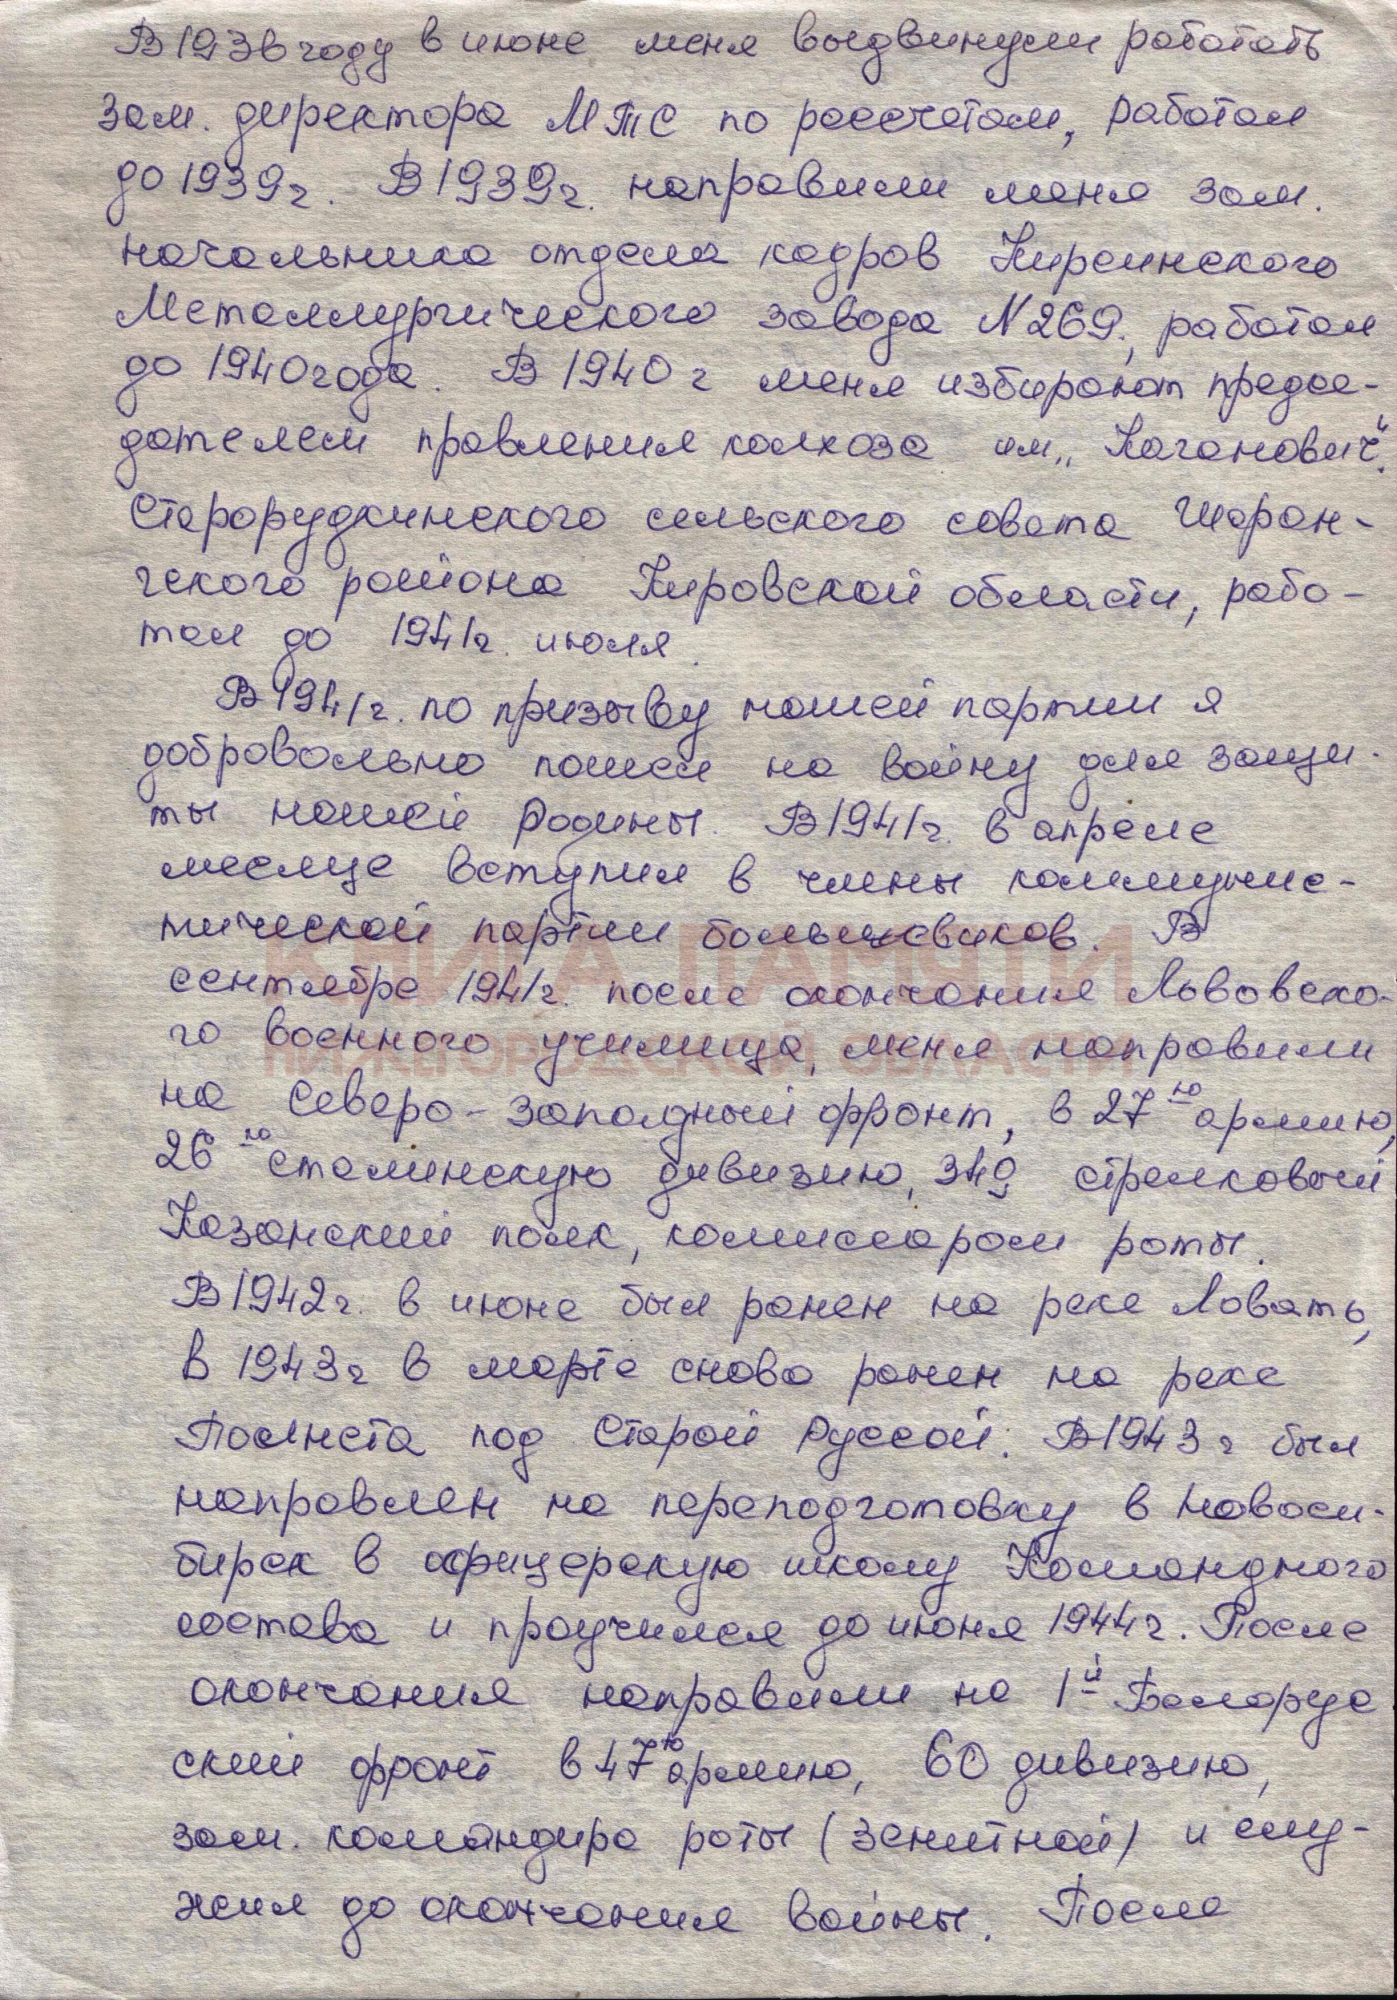 В 1936 году в июне меня выдвинули работать
зам. директора МТС по рассчетам, работал
до 1939 г. В 1939 г. направили меня зам.
начальника отдела кадров
Металлургического завода N 269, работал
до 1940 года. В 1940 г меня избирают предсе-
дателем правления колхоза им „Каганович".
Старорудкинского сельского совета Шаран-
гского района Кировской области, рабо-
тал до 1941 г. июля.
В 1941 г. по призыву нашей партии я
добровольно пошел на войну для защи-
ты нашей Родины. В 1941 г. в апреле
месяце вступил в члены коммунис-
тической партии большевиков. В
сентябре 1941 г. после окончания Львовско-
го военного училища, меня направили
на Северо-западный фронт, в 27ю армию,
26ю сталинскую дивизию, 349 стрелковый
Казанский полк, комиссаром роты.
В 1942 г. в июне был ранен на реке Ловать,
в 1943 г в марте снова ранен на реке
Полнста под Старой Руссой. В 1943 г был
направлен на переподготовку в Новоси-
бирск в офицерскую школу Командного
состава и проучился до июня 1944 г. После
окончания направили на 1й Белорус
ский фронт в 47ю армию, 60 дивизию,
зам. командира роты (зенитной) и слу-
жил до окончания войны. После
КНИГА ПАМЯТИ
НИЖЕГОРОДСКОЙ ОБЛАСТИ